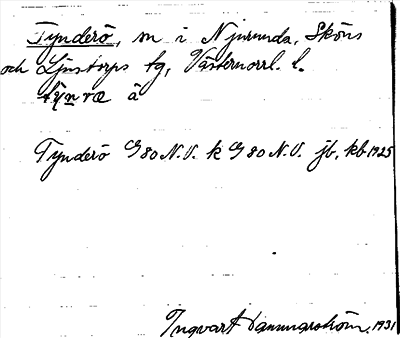 Tynderö, sn i Njurunda, Sköns
och Ljustorps tg, Västernorrl. l.
týnræ à
Tynderö G 80 N.V. k G 80 N.V. jb, kb 1925
Ingvart Dannungström, 1931